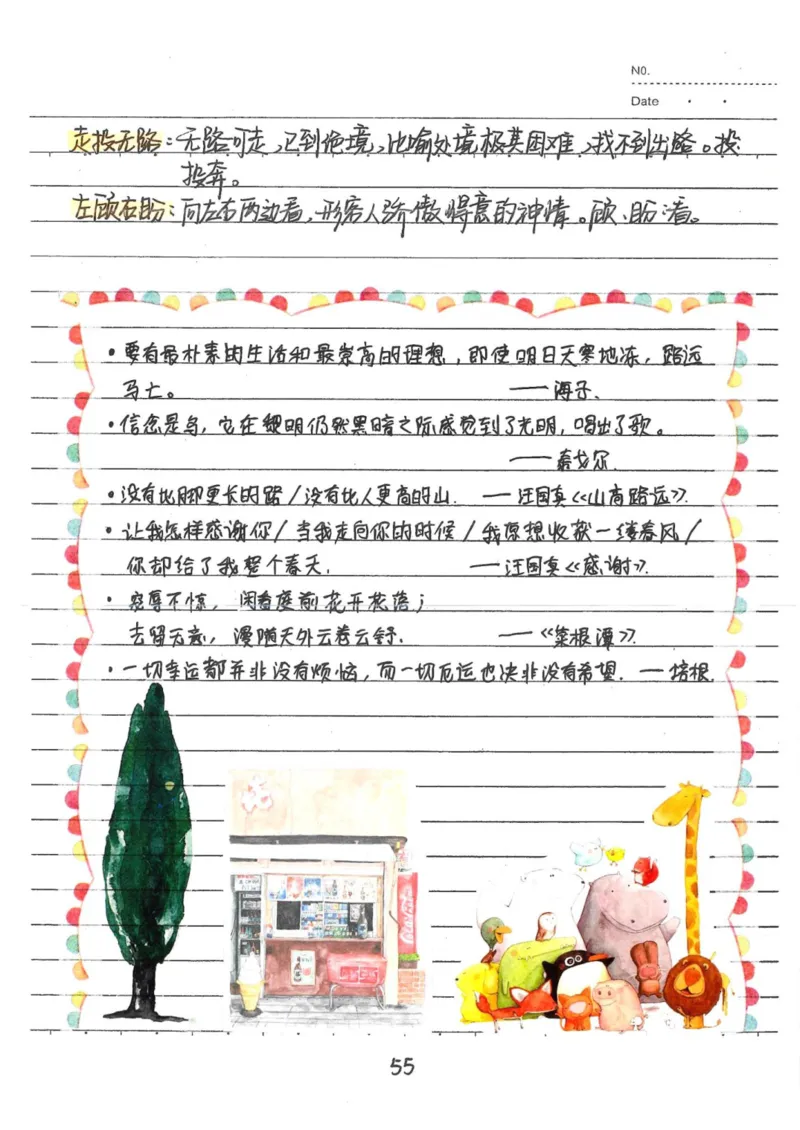 N0.
Date · ·
走投无路：无路可走，已到绝境，比喻处境极其困难，找不到出路。投：
投奔。
左顾右盼：向左右两边看，形容人骄傲得意的神情。顾、盼：看。
·要有最朴素的生活和最崇高的理想，即使明日天寒地冻，路远
马亡。 ——海子.
·信念是鸟，它在黎明仍然黑暗之际感觉到了光明，唱出了歌。
——泰戈尔.
·没有比脚更长的路/没有比人更高的山. —汪国真《山高路远》.
·让我怎样感谢你/当我走向你的时候/我原想收获一缕春风/
你却给了我整个春天. ——汪国真《感谢》.
·宠辱不惊，闲看庭前花开花落；
去留无意，漫随天外云卷云舒. ——《菜根谭》.
·一切幸运都并非没有烦恼，而一切厄运也决非没有希望. —培根.
55